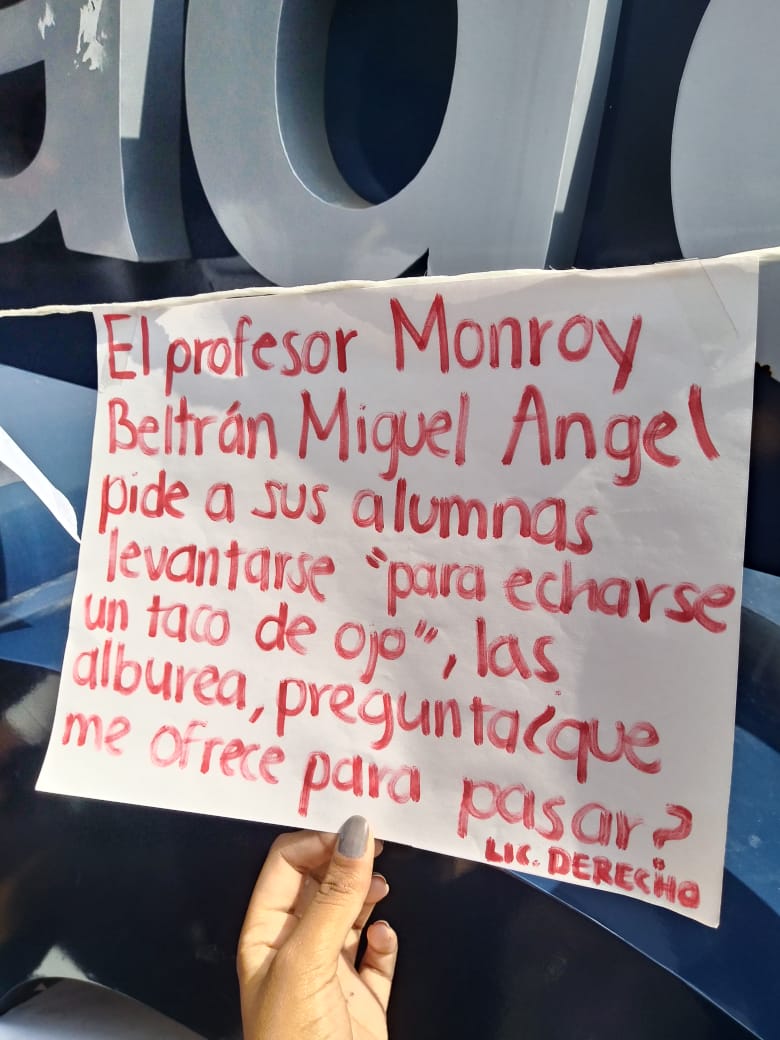 El profesor Monroy
Beltrán Miguel Angel
pide a sus alumnas
levantarse "para echarse
un taco de ojo", las
alburea, pregunta ¿que
me ofrece para pasar?
LIC. DERECHO